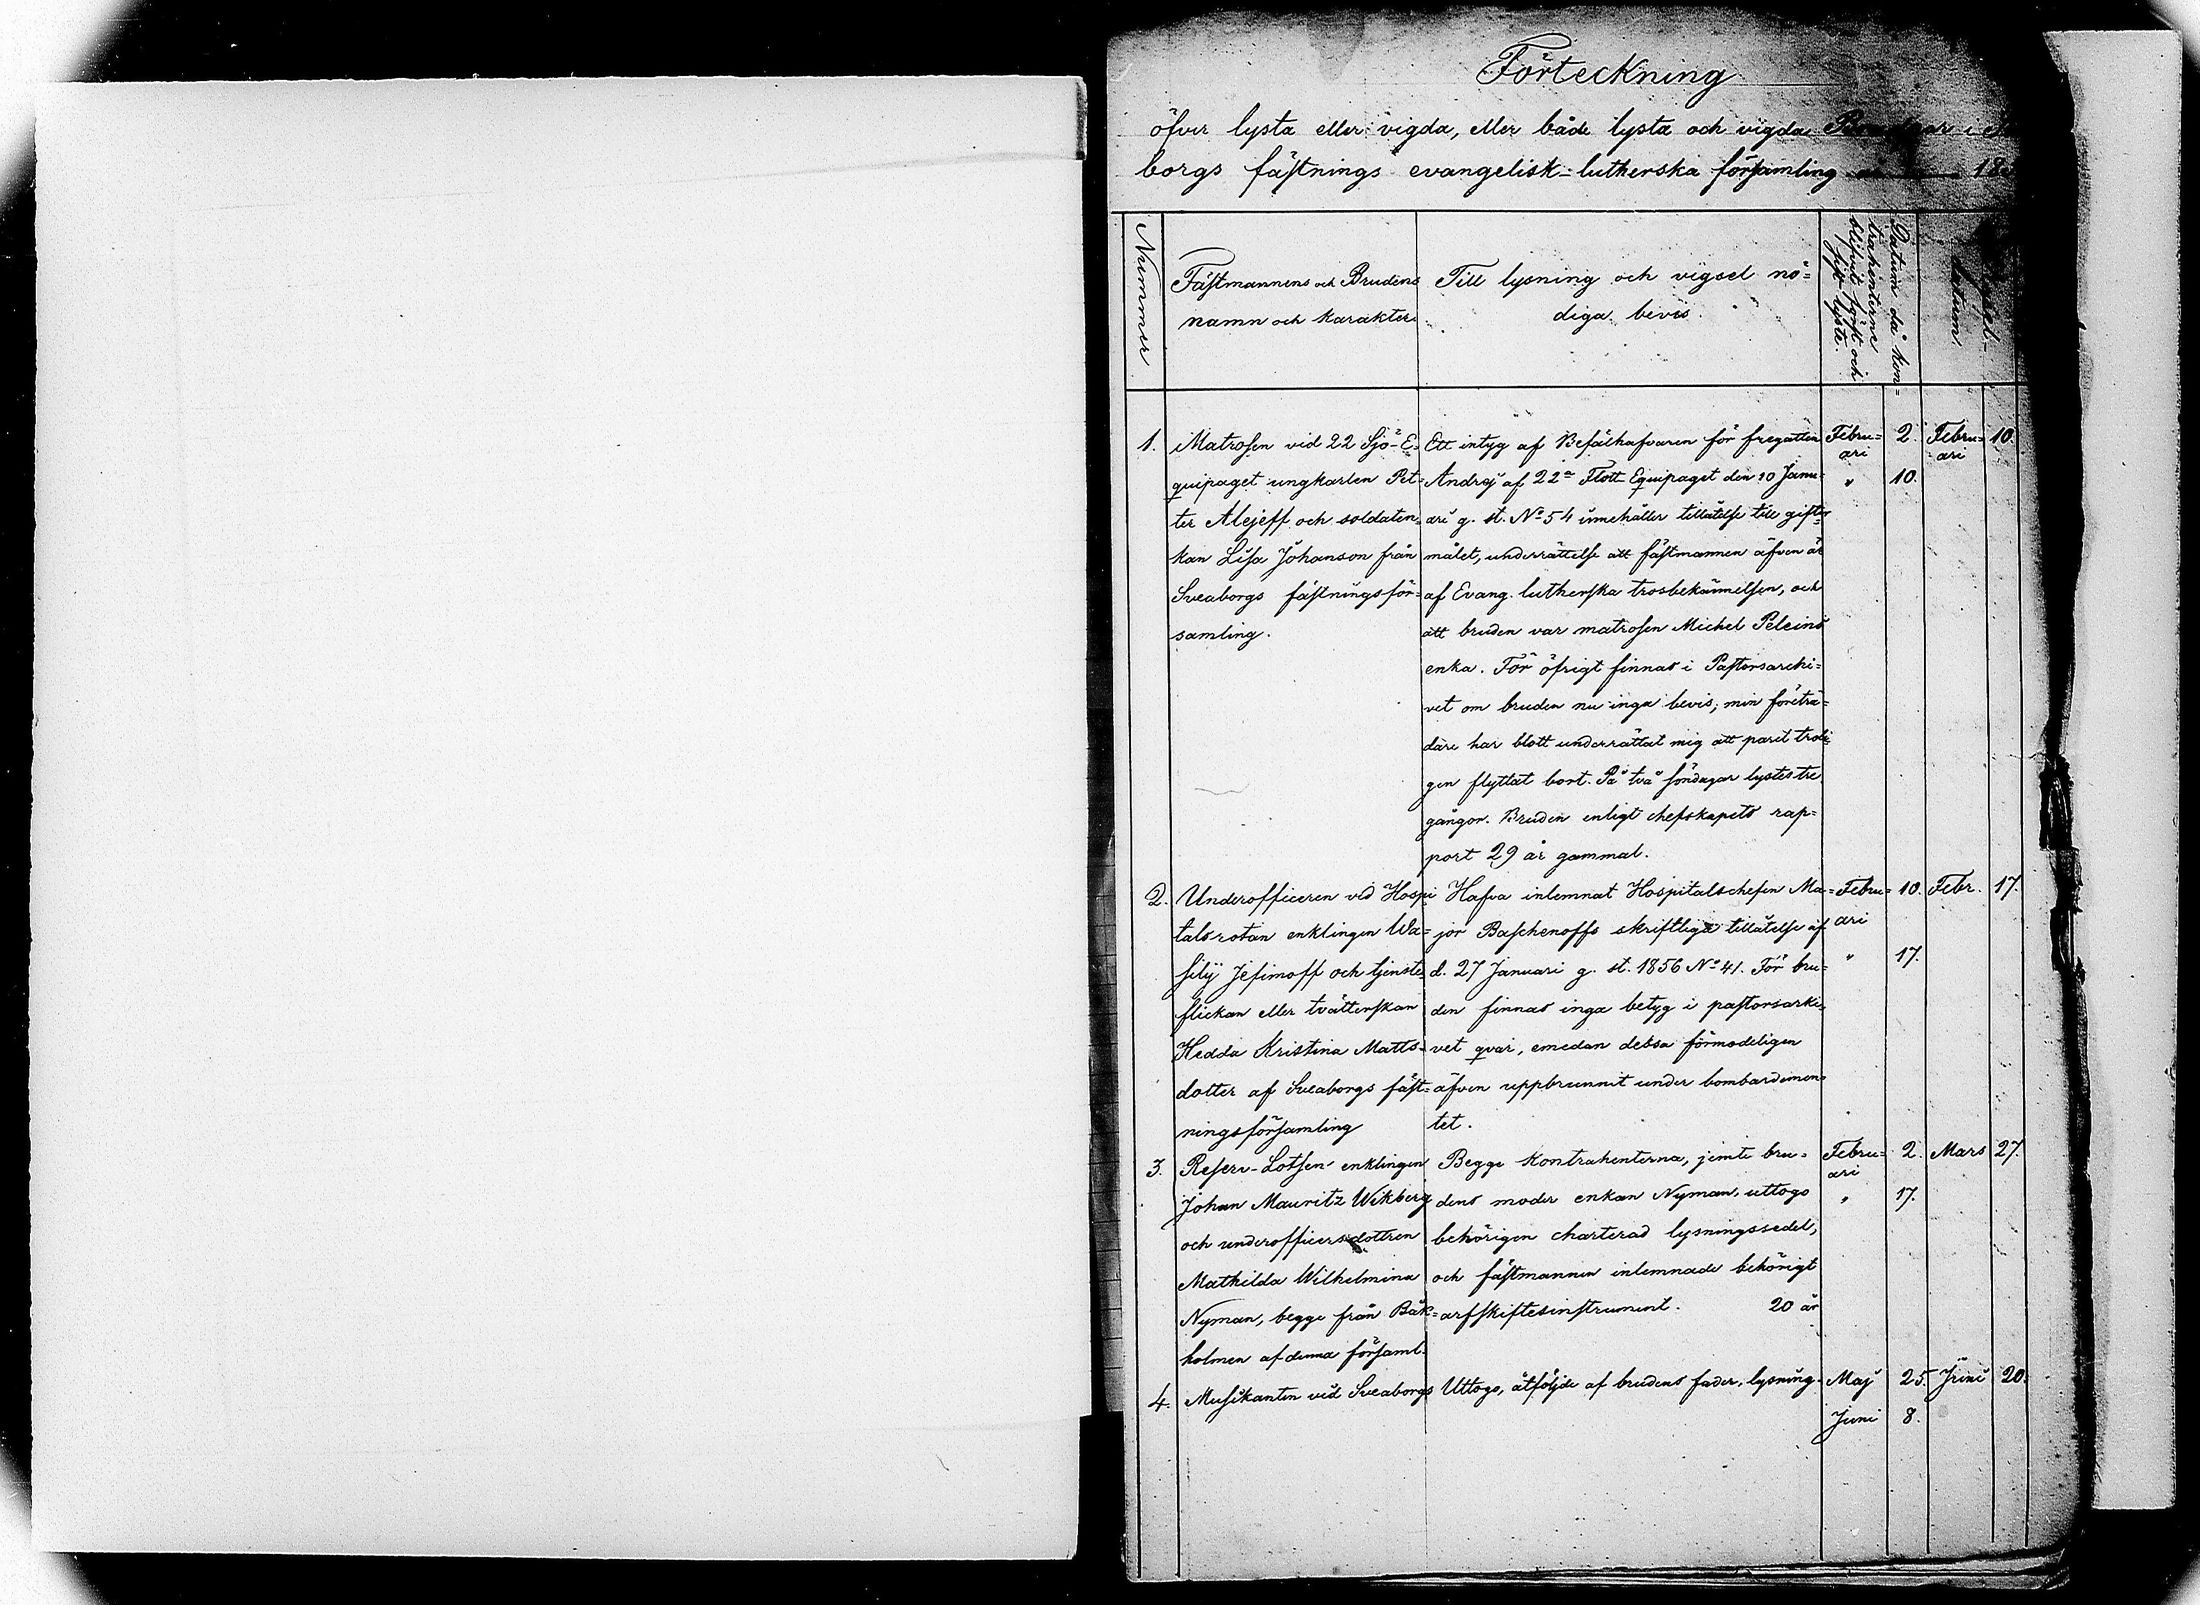 Förteckning
öfver lysta eller vigda, eller både lysta och vigda
borgs fästnings evangelisk-lutherska församling
Nummer
Fästmannens och Brudens
namn och karakter.
Till lysning och vigsel nö=
diga bevis.
Datum då kon=
trahenterna
blifvit första och
sista lyste.
datum.
1.
Matrosen vid 22 Sjö-E-
quipaget ungkarlen Pet-
ter Alejeff och soldaten-
kan Lisa Johanson från
Sveaborgs fästningsför-
samling.
Ett intyg af Befälhafvaren för fregatten
Andrej af 22a Flott Equipaget den 10 Janu-
ari g. st. No 54 innehåller tillåtelse till gifter
målet, underrättelse att fästmannen äfven är
af Evang. lutherska trosbekännelsen, och
att bruden var matrosen Michel Peleins
enka. För öfrigt finnas i Pastorsarchi=
vet om bruden nu inga bevis; min företrä=
dare har blott underrättat mig att paret troli-
gen flyttat bort. På två söndagar lystes tre
gångor. Bruden enligt chefskapets rap=
port 29 år gammal.
Febru=
ari
2.
Febru=
ari
10.
"
10.
2.
Underofficeren vid Hospi
talsrotan enklingen Wa=
silij Jefimoff och tjenste
flickan eller tvätterskan
Hedda Kristina Matts-
dotter af Sveaborgs fäst=
ningsförsamling
Hafva inlemnat Hospitalschefen Ma=
jor Baschenoffs skriftliga tillåtelse af
d. 27 Januari g. st. 1856 No 41. För bru=
den finnas inga betyg i pastorsarki-
vet qvar, emedan dessa förmodeligen
äfven uppbrunnit under bombardemen-
tet.
Febru=
ari
10.
Febr.
17.
"
17.
3.
Reserv-Lotsen enklingen
Johan Mauritz Wikberg
och underofficersdottren
Mathilda Wilhelmina
Nyman, begge från Bäk=
holmen af denna församl.
Begge kontrahenterna, jemte bru-
dens moder enkan Nyman, uttogs
behörigen charterad lysningssedel,
och fästmannen inlemnade behörigt
arfskiftesinstrument. 20 år
Febru=
ari
2.
Mars
27.
"
17.
4.
Musikanten vid Sveaborgs
Uttogs, åtföljde af brudens fader, lysning-
Maj
25.
Juni
20.
Juni
8.